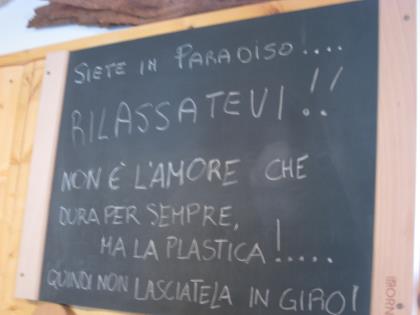 SIETE IN PARADISO!....
RILASSATEVI!!
NON È L'AMORE CHE
DURA PER SEMPRE,
MA LA PLASTICA!.....
QUINDI NON LASCIATELA IN GIRO!